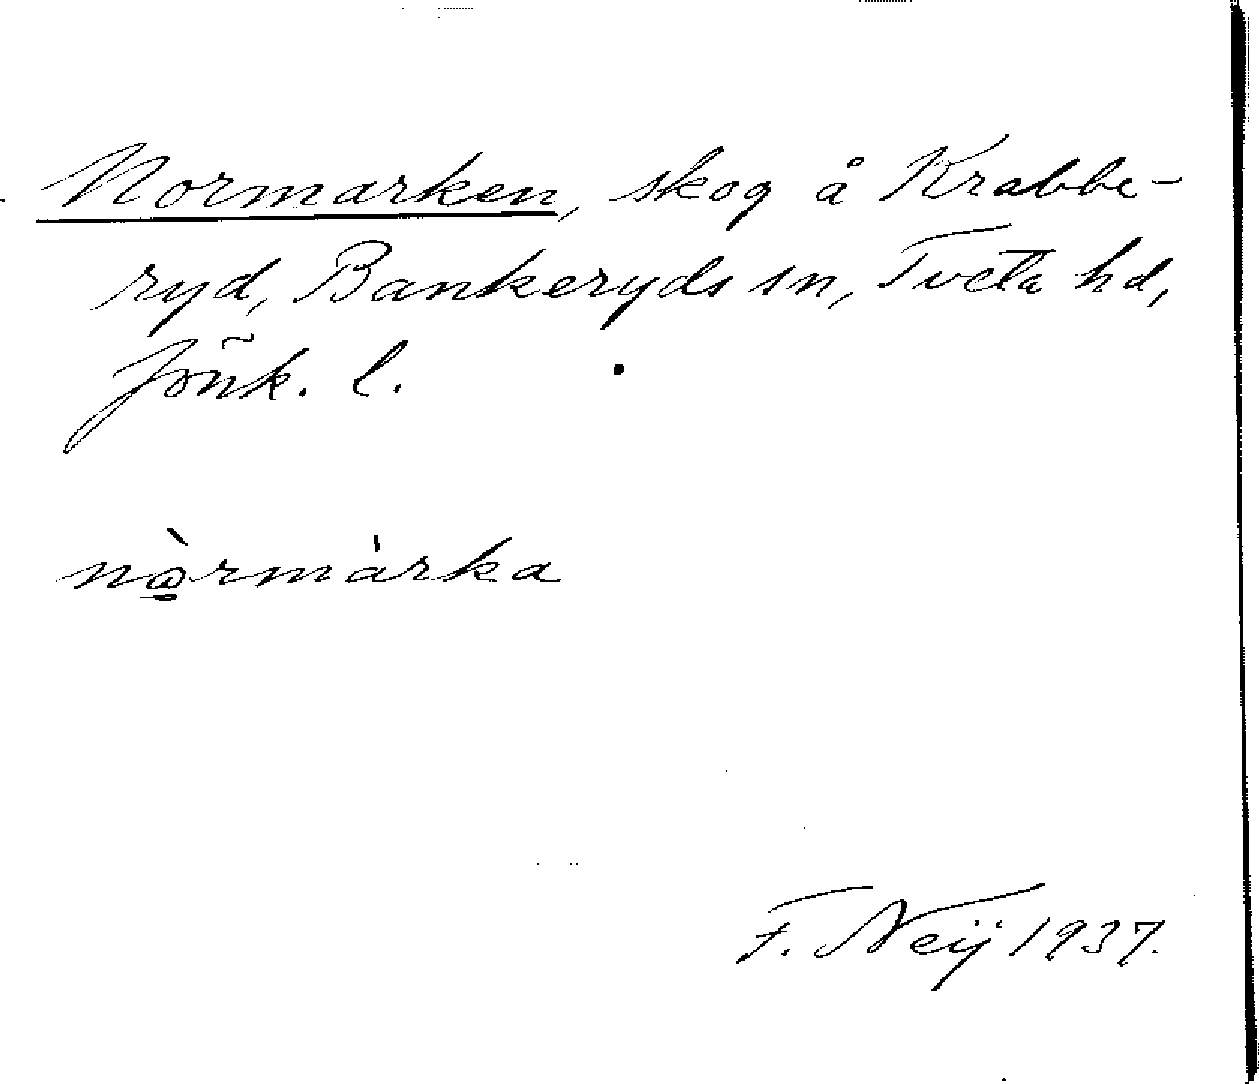 Normarken, skog å Krabbe-
ryd, Bankeryds sn, Tveta hd,
Jönk. l.
nòrmàrka
F. Neij 1937.